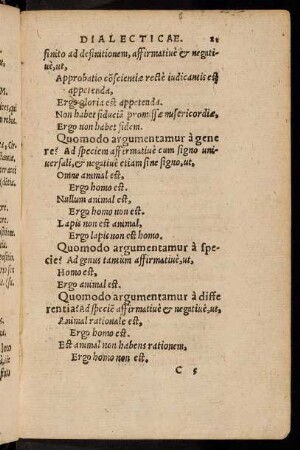 DIALECTICAE. 21
finito ad definitionem, affirmatiuè & negati-
uè, ut,
Approbatio cõscientiæ rectè iudicantis est
appetenda,
Ergo gloria est appetenda.
Non habet fiduciã promissæ misericordiæ,
Ergo non habet fidem.
Quomodo argumentamur à gene
re? Ad speciem affirmatiuè cum signo uni-
uersali, & negatiuè etiam sine signo, ut,
Omne animal est,
Ergo homo est.
Nullum animal est,
Ergo homo non est.
Lapis non est animal,
Ergo lapis non est homo.
Quomodo argumentamur à spe-
cie? Ad genus tantum affirmatiuè, ut,
Homo est,
Ergo animal est.
Quomodo argumentamur à diffe
rentia? Ad speciẽ affirmatiuè & negatiuè, ut,
Animal rationale est,
Ergo homo est.
Est animal non habens rationem,
Ergo homo non est.
C 5